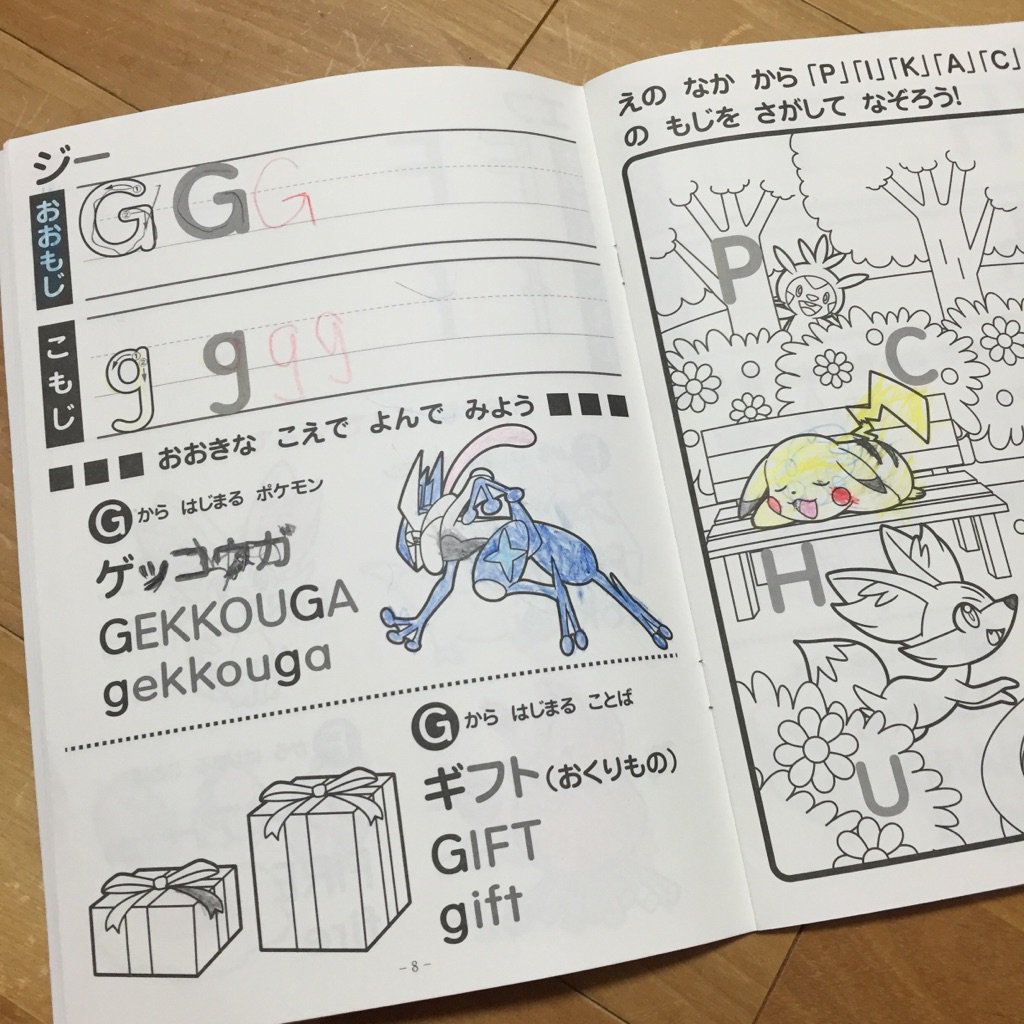 ジー
おおもじ
G G G
こもじ
g g g g
■■■ おおきな こえで よんで みよう ■■■
G から はじまる ポケモン
ゲッコウガ
GEKKOUGA
gekkouga
G から はじまる ことば
ギフト(おくりもの)
GIFT
gift
-8-
えの なか から「P」「I」「K」「A」「C」
の もじを さがして なぞろう!
P
C
H
U